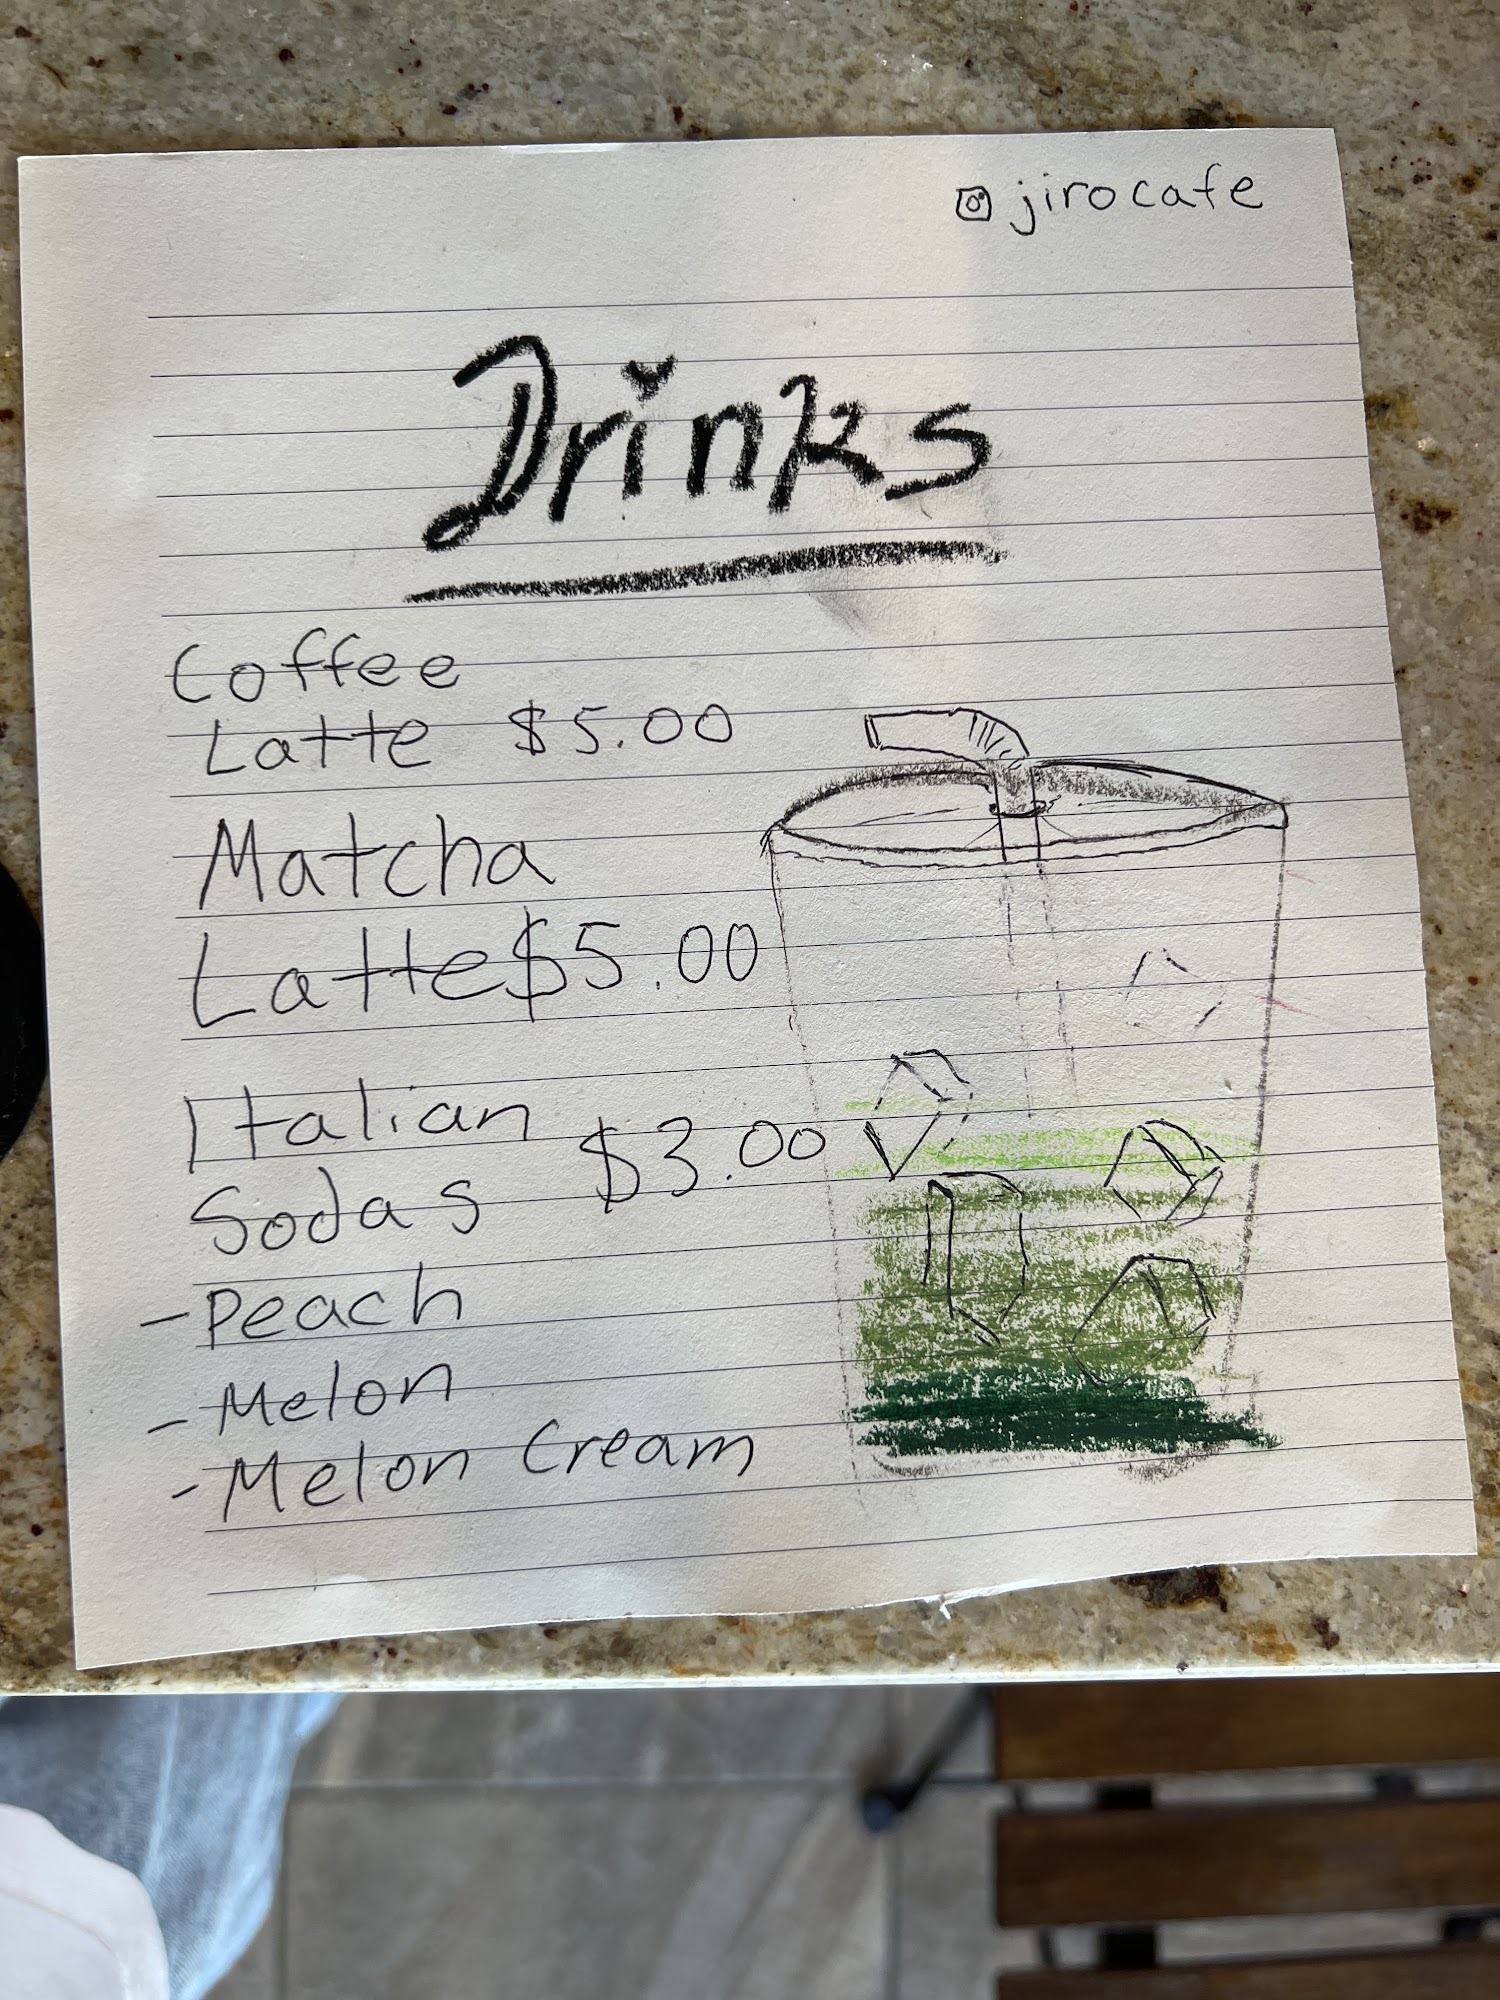 jirocafe
Drinks
Coffee
Latte $5.00
Matcha
Latte $5.00
Italian
Sodas $3.00
- Peach
- Melon
- Melon Cream